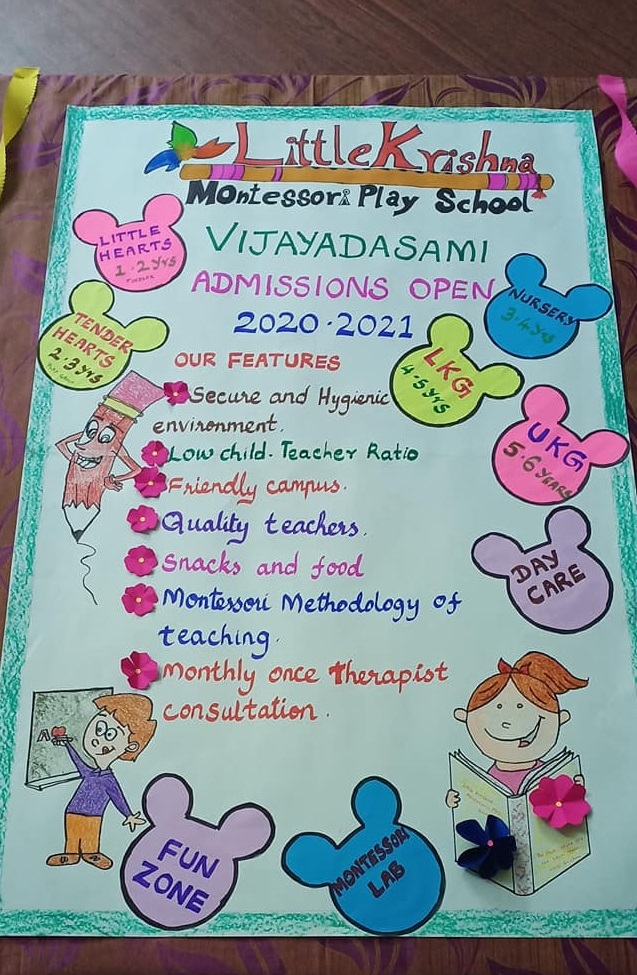 Little Krishna
Montessori Play School
VIJAYADASAMI
ADMISSIONS OPEN
2020-2021
LITTLE
HEARTS
1-2 yrs
TENDER
HEARTS
2-3 yrs
NURSERY
3-4 yrs
LKG
4-5 yrs
UKG
5-6 YEARS
DAY
CARE
OUR FEATURES
Secure and Hygienic
environment.
Low child-Teacher Ratio
Friendly campus.
Quality teachers.
Snacks and food
Montessori Methodology of
teaching.
Monthly once Therapist
consultation.
FUN
ZONE
MONTESSORI
LAB